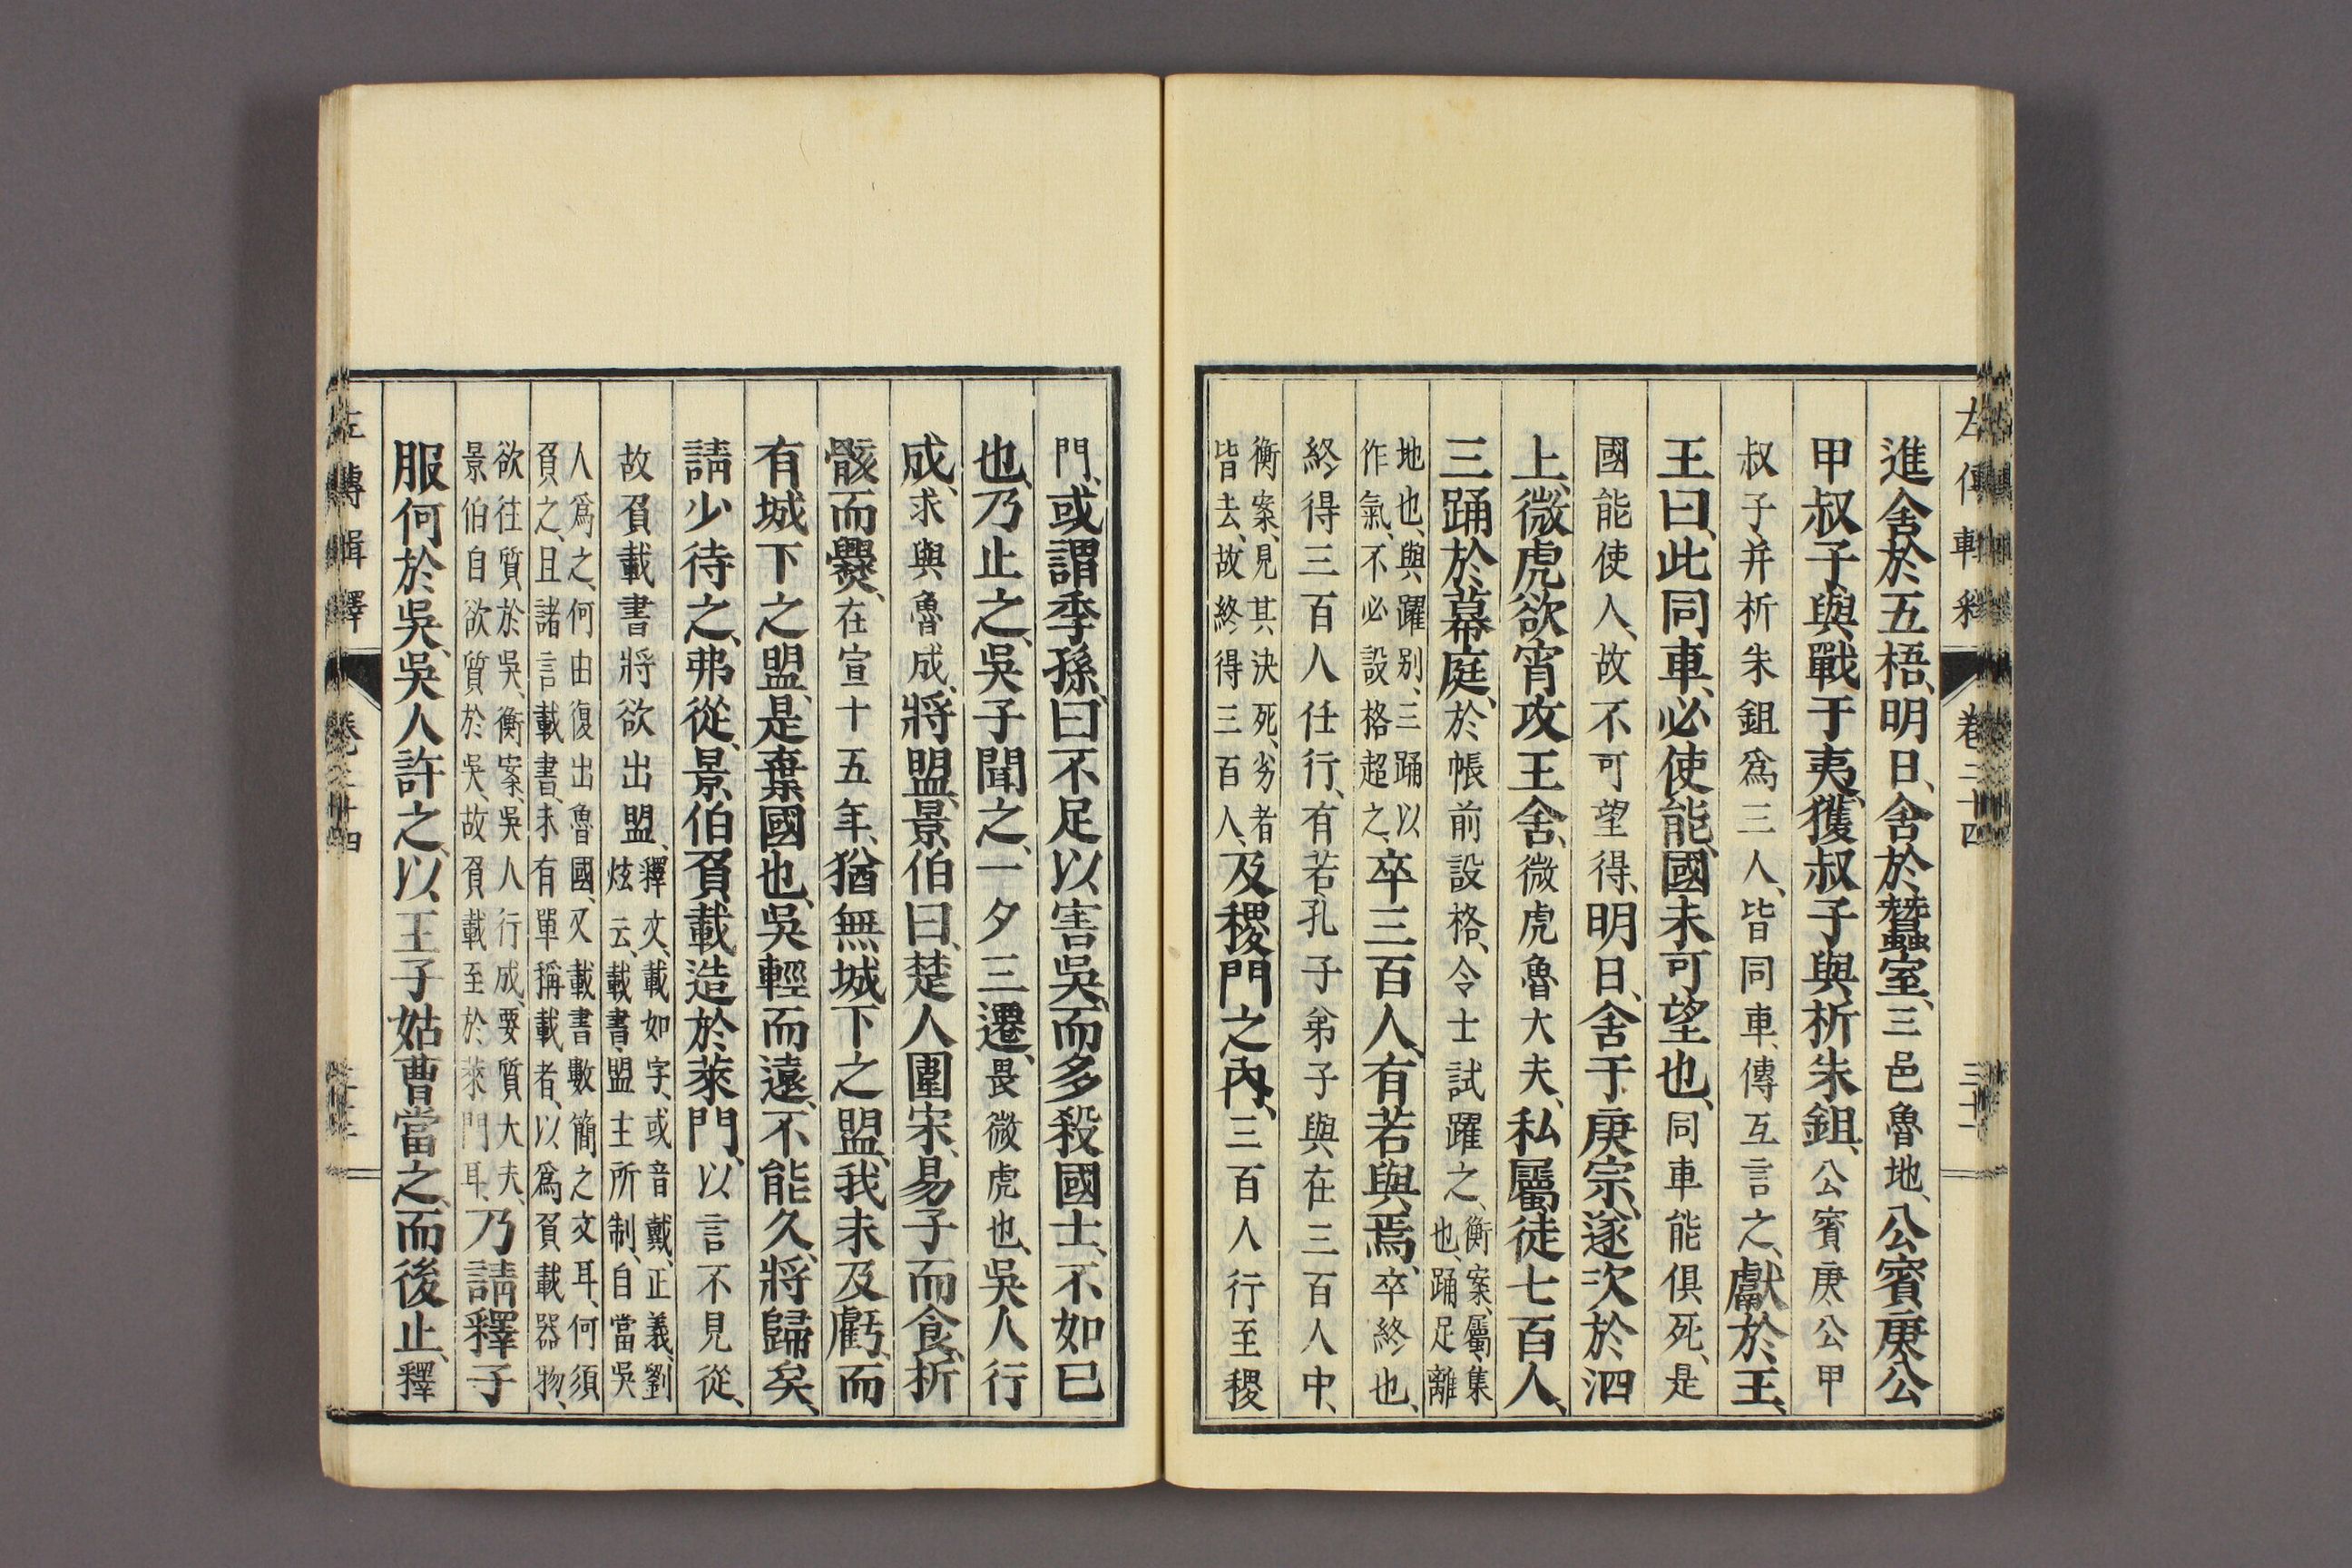 左傳輯釋 卷二十四
進舍於五梧、明日、舍於蠶室、三邑魯地、公賓庚公
甲叔子與戰于夷、獲叔子與析朱鉏、公賓庚公甲
叔子并析朱鉏爲三人、皆同車、傳互言之、獻於王、
王曰、此同車、必使能、國未可望也、同車能俱死、是
國能使人、故不可望得、明日、舍于庚宗、遂次於泗
上、微虎欲宵攻王舍、微虎魯大夫、私屬徒七百人、
三踊於幕庭、於帳前設格、令士試躍之、衡案、屬、集
也、踊、足離
地也、與躍別、三踊以
作氣、不必設格超之、卒三百人、有若與焉、卒終也、
終得三百人任行、有若孔子弟子與在三百人中、
衡案、見其決死、劣者
皆去、故終得三百人、及稷門之內、三百人行至稷
門、或謂季孫曰、不足以害吳、而多殺國士、不如已
也、乃止之、吳子聞之、一夕三遷、畏微虎也、吳人行
成、求與魯成、將盟、景伯曰、楚人圍宋、易子而食、析
骸而爨、在宣十五年、猶無城下之盟、我未及虧、而
有城下之盟、是棄國也、吳輕而遠、不能久、將歸矣、
請少待之、弗從、景伯負載造於萊門、以言不見從、
故負載書將欲出盟、釋文、載如字、或音戴、正義、劉
炫云、載書、盟主所制、自當吳
人爲之、何由復出魯國、又載書數簡之文耳、何須
負之、且諸言載書、未有單稱載者、以爲負載器物、
欲往質於吳、衡案、吳人行成、要質大夫、
景伯自欲質於吳、故負載至於萊門耳、乃請釋子
服何於吳、吳人許之、以王子姑曹當之、而後止、釋
左傳輯釋 卷二十四